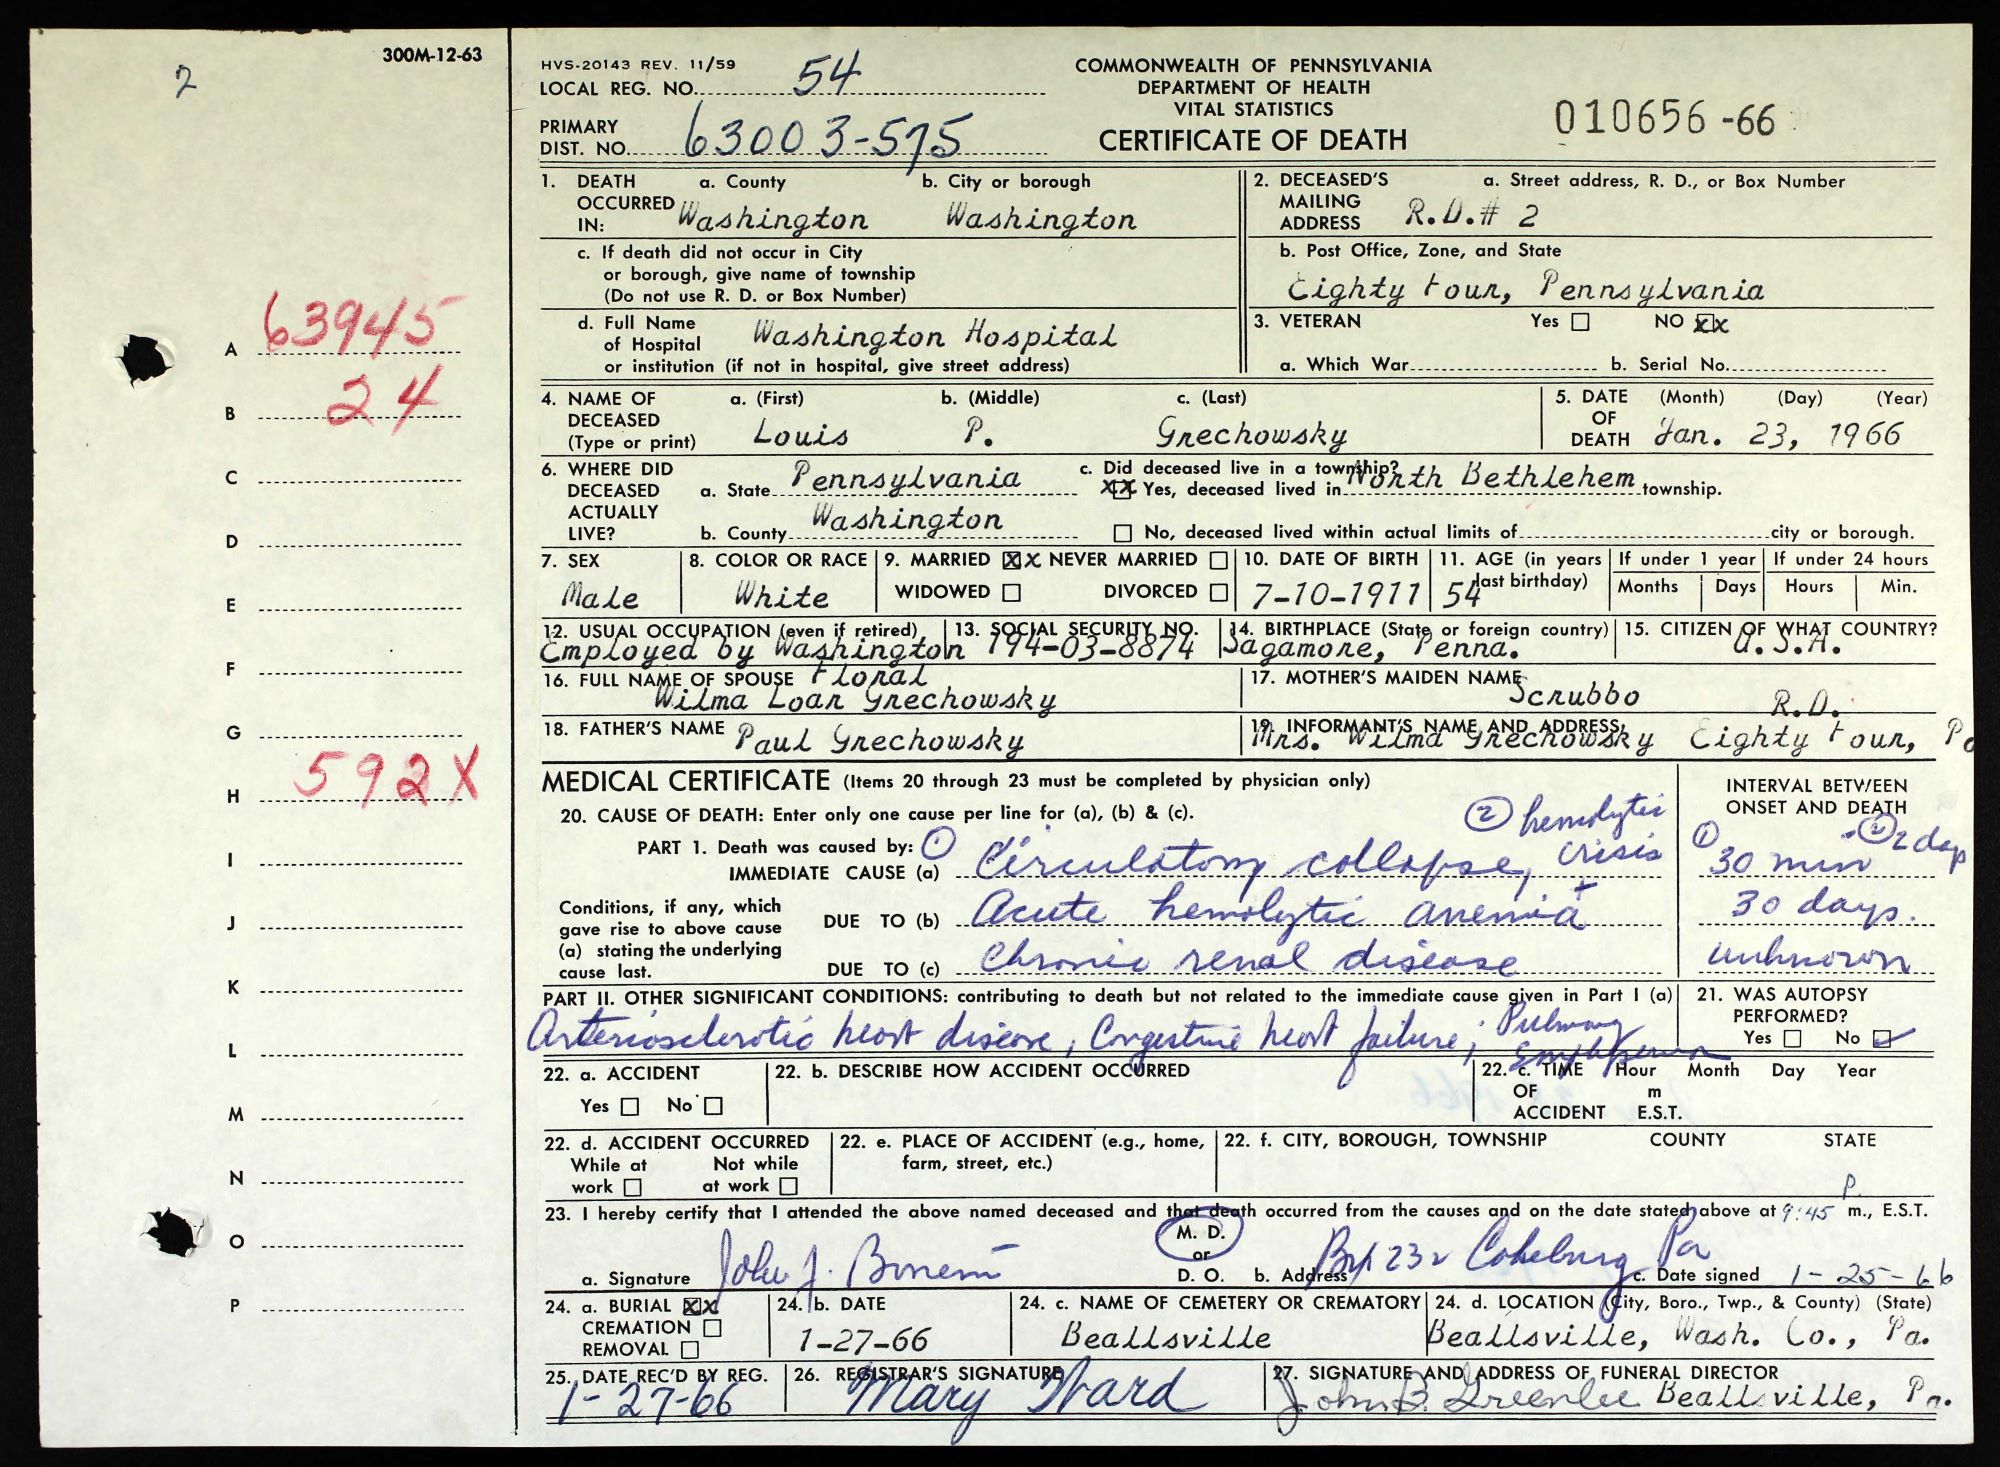 2
300M-12-63
HVS-20143 REV. 11/59
LOCAL REG. NO. 54
PRIMARY DIST. NO. 63003-575
COMMONWEALTH OF PENNSYLVANIA
DEPARTMENT OF HEALTH
VITAL STATISTICS
CERTIFICATE OF DEATH
010656-66
A 63945
B 24
C
D
E
F
G
H 592X
I
J
K
L
M
N
O
P
1. DEATH OCCURRED IN: a. County Washington b. City or borough Washington
c. If death did not occur in City
or borough, give name of township
(Do not use R. D. or Box Number)
d. Full Name of Hospital Washington Hospital
or institution (if not in hospital, give street address)
2. DECEASED'S MAILING ADDRESS a. Street address, R. D., or Box Number
R.D.# 2
b. Post Office, Zone, and State
Eighty Four, Pennsylvania
3. VETERAN Yes NO XX
a. Which War b. Serial No.
4. NAME OF DECEASED (Type or print) a. (First) Louis b. (Middle) P. c. (Last) Grechowsky
5. DATE OF DEATH (Month) (Day) (Year) Jan. 23, 1966
6. WHERE DID DECEASED ACTUALLY LIVE? a. State Pennsylvania
b. County Washington
c. Did deceased live in a township?
XX Yes, deceased lived in North Bethlehem township.
No, deceased lived within actual limits of city or borough.
7. SEX Male
8. COLOR OR RACE White
9. MARRIED XX NEVER MARRIED
WIDOWED DIVORCED
10. DATE OF BIRTH 7-10-1911
11. AGE (in years last birthday) 54
If under 1 year Months Days
If under 24 hours Hours Min.
12. USUAL OCCUPATION (even if retired) Employed by Washington Floral
13. SOCIAL SECURITY NO. 194-03-8874
14. BIRTHPLACE (State or foreign country) Sagamore, Penna.
15. CITIZEN OF WHAT COUNTRY? U.S.A.
16. FULL NAME OF SPOUSE Wilma Loar Grechowsky
17. MOTHER'S MAIDEN NAME Scrubbo
18. FATHER'S NAME Paul Grechowsky
19. INFORMANT'S NAME AND ADDRESS Mrs. Wilma Grechowsky R.D. Eighty Four, Pa
MEDICAL CERTIFICATE (Items 20 through 23 must be completed by physician only)
20. CAUSE OF DEATH: Enter only one cause per line for (a), (b) & (c).
INTERVAL BETWEEN ONSET AND DEATH
PART 1. Death was caused by:
IMMEDIATE CAUSE (a) ① Circulatory collapse, ② hemolytic crisis ① 30 min - ② 2 days
Conditions, if any, which
gave rise to above cause
(a) stating the underlying
cause last.
DUE TO (b) Acute hemolytic anemia + 30 days.
DUE TO (c) Chronic renal disease unknown
PART II. OTHER SIGNIFICANT CONDITIONS: contributing to death but not related to the immediate cause given in Part I (a)
Arteriosclerotic heart disease, Congestive heart failure; Pulmonary Emphysema
21. WAS AUTOPSY PERFORMED?
Yes No ✓
22. a. ACCIDENT
Yes No
22. b. DESCRIBE HOW ACCIDENT OCCURRED
22. c. TIME OF ACCIDENT Hour Month Day Year
m E.S.T.
22. d. ACCIDENT OCCURRED
While at work Not while at work
22. e. PLACE OF ACCIDENT (e.g., home, farm, street, etc.)
22. f. CITY, BOROUGH, TOWNSHIP COUNTY STATE
23. I hereby certify that I attended the above named deceased and that death occurred from the causes and on the date stated above at 9:45 P. m., E.S.T.
a. Signature John J. M. D. or D. O. b. Address Box 232 Cokeburg Pa c. Date signed 1-25-66
24. a. BURIAL XX
CREMATION
REMOVAL
24. b. DATE 1-27-66
24. c. NAME OF CEMETERY OR CREMATORY Beallsville
24. d. LOCATION (City, Boro., Twp., & County) (State) Beallsville, Wash. Co., Pa.
25. DATE REC'D BY REG. 1-27-66
26. REGISTRAR'S SIGNATURE Mary Ward
27. SIGNATURE AND ADDRESS OF FUNERAL DIRECTOR John B. Greenlee Beallsville, Pa.